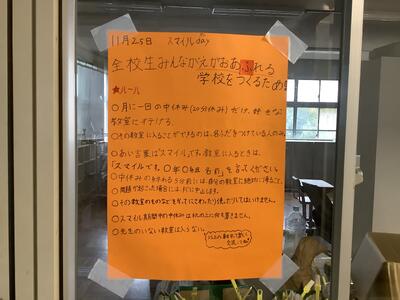 11月25日 スマイルday
全校生みんながえがおあふれる
学校をつくるため
★ルール
○月に一回の中休み(20分休み)だけ、
教室に行ける。
○その教室に入ることができるのは、名ふだをつけている人のみ。
○あい言葉はスマイルです。教室に入るときは、
「スマイルです。○年○組 名前」を言ってください。
○中休みのおわる5分前には自分の教室に絶対に帰ること。
○問題がおこった場合にはすぐに中止します。
○その教室のものなどをかってにさわったり使ったりしてはいけません。
○スマイル期間中の中休みは
○先生のいない教室は入らない。